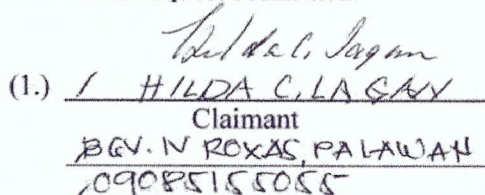 Hilda C. Lagan
(1.) / HILDA C. LAGAN
Claimant
BGY. IV ROXAS, PALAWAN
09085155055